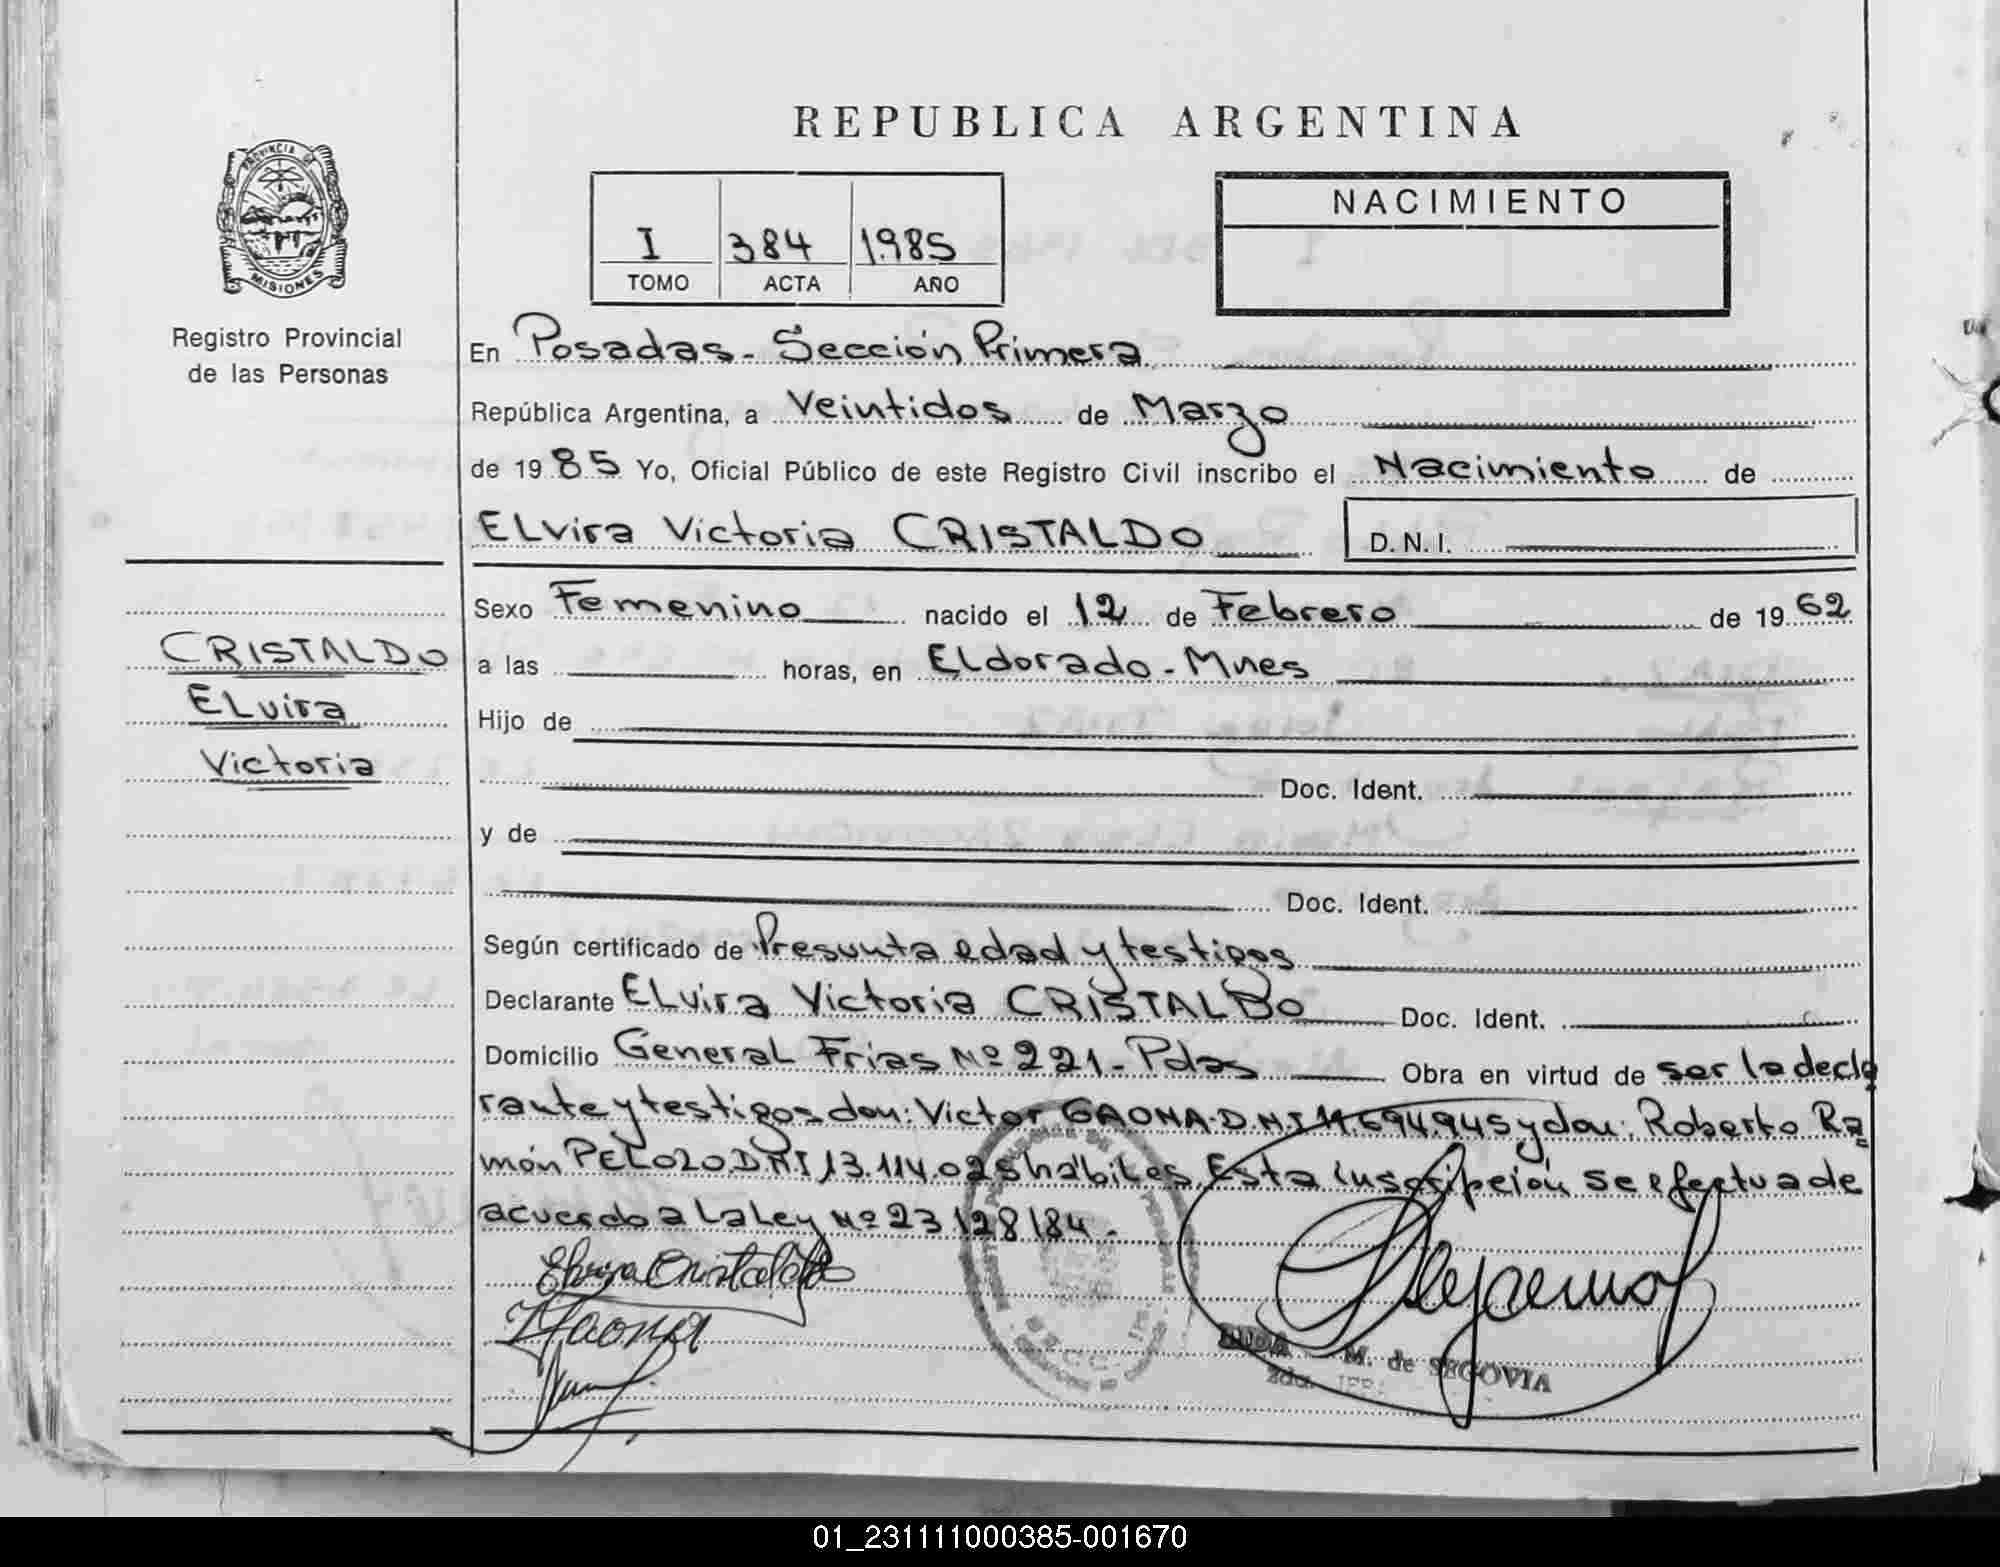 REPUBLICA ARGENTINA
PROVINCIA DE
MISIONES
Registro Provincial
de las Personas
I 384 1985
TOMO ACTA AÑO
NACIMIENTO
En Posadas - Sección Primera
República Argentina, a Veintidos de Marzo
de 1985 Yo, Oficial Público de este Registro Civil inscribo el Nacimiento de
ELvira Victoria CRISTALDO D. N. I.
Sexo Femenino nacido el 12 de Febrero de 1962
CRISTALDO
ELvira
Victoria
a las horas, en ELdorado - Mnes
Hijo de
Doc. Ident.
y de
Doc. Ident.
Según certificado de Presunta edad y testigos
Declarante ELvira Victoria CRISTALDO Doc. Ident.
Domicilio General Frias Nº 221 - Pdas Obra en virtud de ser la decla
rante y testigos don: Victor GAONA - D.N.I 11.694.945 y don: Roberto Ra
món PELOZO D.N.I 13.114.025 hábiles. Esta inscripción se efectua de
acuerdo a La Ley Nº 23128/84.
Elvira Cristaldo
VGaona
M. de SEGOVIA
2da. JEFA
01_231111000385-001670